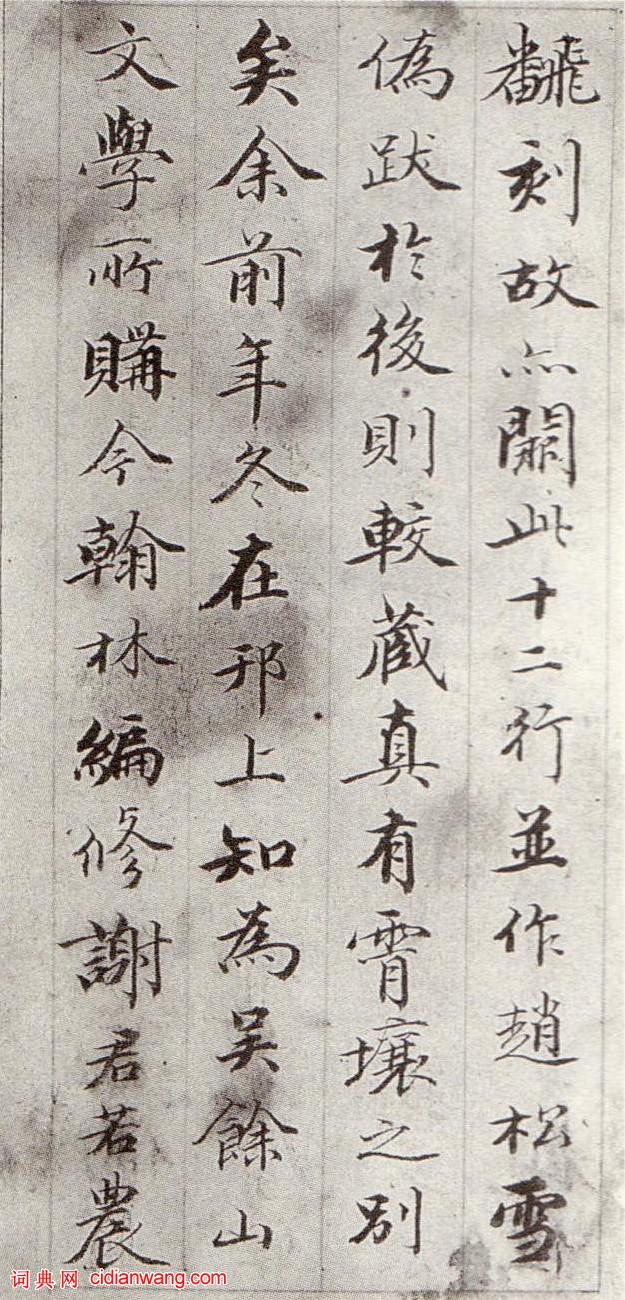 飜刻故亦闕此十二行並作趙松雪
偽跋於後則較蔵真有霄壤之別
矣余前年冬在邗上知為吳餘山
文學所購今翰林編修謝君若農
词典网 cidianwang.com